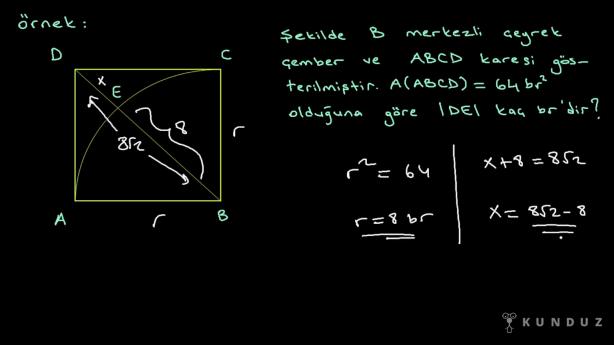 örnek:
Şekilde B merkezli çeyrek
çember ve ABCD karesi gös-
terilmiştir. A(ABCD) = 64 br²
olduğuna göre |DE| kaç br'dir?
D
C
x
E
8
8√2
r
A
r
B
r² = 64
r = 8 br
x + 8 = 8√2
x = 8√2 - 8
KUNDUZ